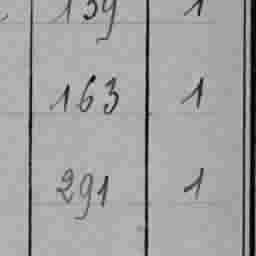 159 1
163 1
291 1